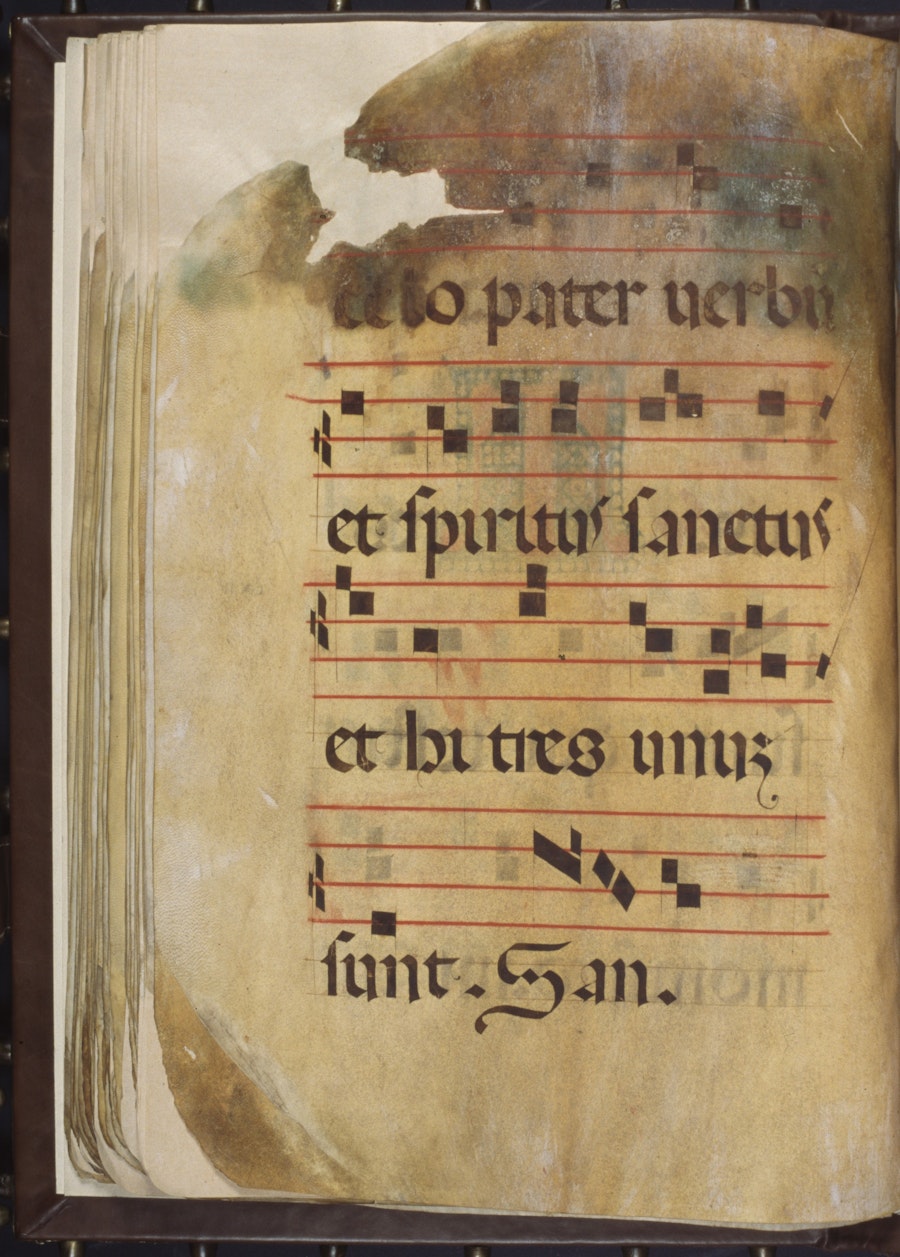 celo pater verbū
et spiritus sanctus
et hi tres unuz
sunt. San.